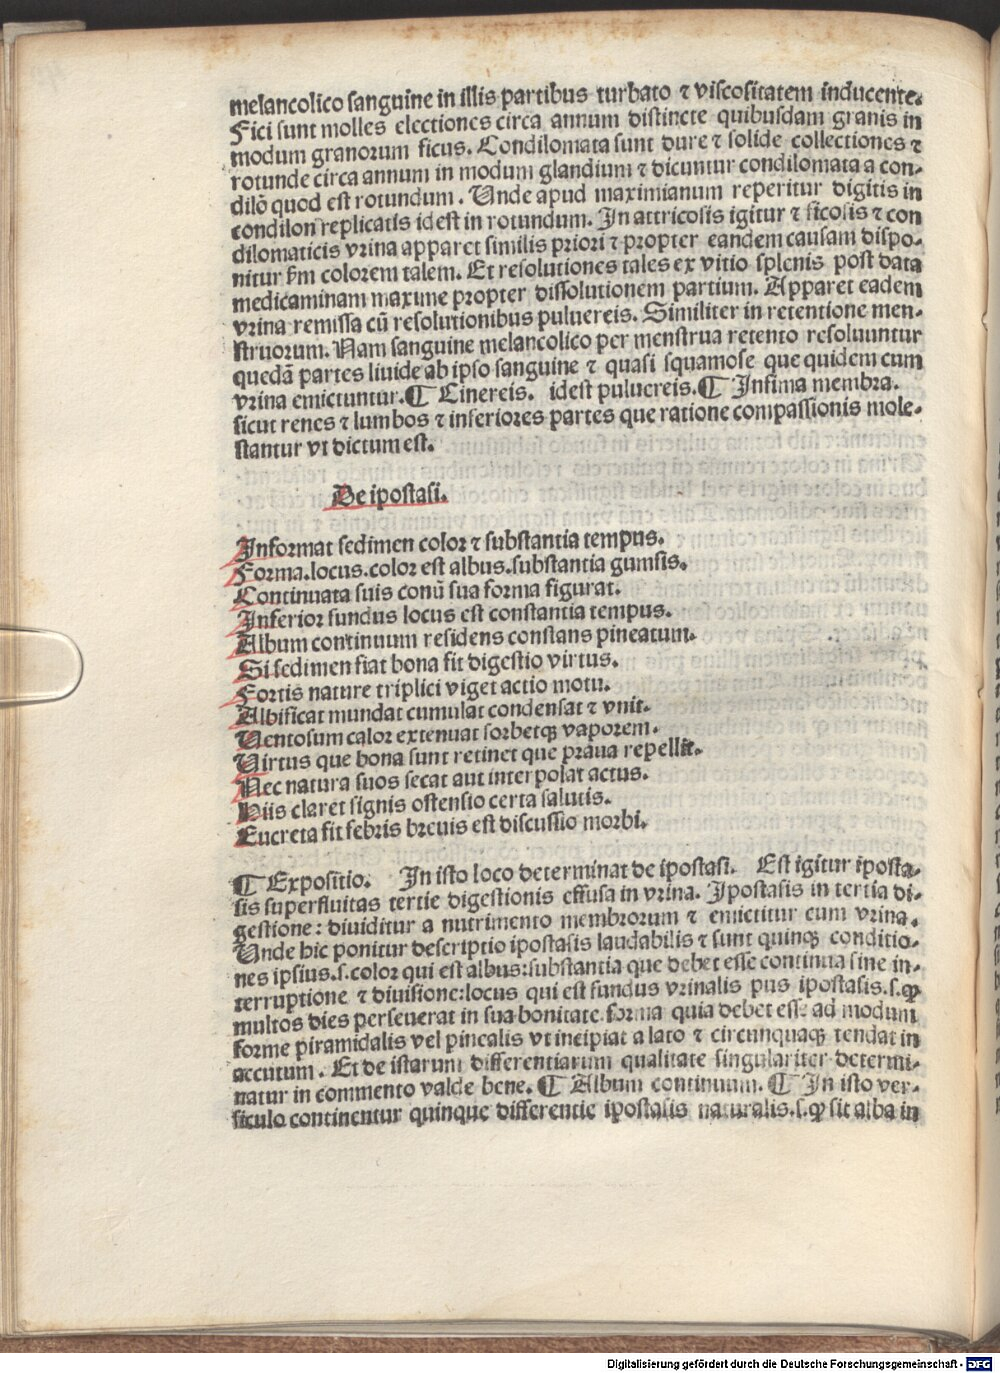 melancolico sanguine in illis partibus turbato ⁊ viscositatem inducente.
Fici sunt molles electiones circa annum distincte quibusdam granis in
modum granorum ficus. Condilomata sunt dure ⁊ solide collectiones ⁊
rotunde circa annum in modum glandium ⁊ dicuntur condilomata a con-
dilō quod est rotundum. Unde apud maximianum reperitur digitis in
condilon replicatis id est in rotundum. In attricosis igitur ⁊ ficosis ⁊ con
dilomaticis vrina apparet similis priori ⁊ propter eandem causam dispo-
nitur s̄m colorem talem. Et resolutiones tales ex vitio splenis post data
medicaminam maxime propter dissolutionem partium. Apparet eadem
vrina remissa cū resolutionibus puluereis. Similiter in retentione men-
struorum. Nam sanguine melancolico per menstrua retento resoluuntur
quedā partes liuide ab ipso sanguine ⁊ quasi squamose que quidem cum
vrina emictuntur. ¶ Cinereis. idest puluereis. ¶ Infima membra.
sicut renes ⁊ lumbos ⁊ inferiores partes que ratione compassionis mole-
stantur vt dictum est.
De ipostasi.
Informat sedimen color ⁊ substantia tempus.
Forma.locus.color est albus.substantia gumsis.
Continuata suis conū sua forma figurat.
Inferior fundus locus est constantia tempus.
Album continuum residens constans pineatum.
Si sedimen fiat bona fit digestio virtus.
Fortis nature triplici viget actio motu.
Albificat mundat cumulat condensat ⁊ vnit.
Uentosum calor extenuat sorbetqꝫ vaporem.
Uirtus que bona sunt retinet que praua repellit.
Nec natura suos secat aut interpolat actus.
Hiis claret signis ostensio certa salutis.
Eucreta fit febris breuis est discussio morbi.
¶ Expositio. In isto loco determinat de ipostasi. Est igitur iposta-
sis superfluitas tertie digestionis effusa in vrina. Ipostasis in tertia di-
gestione: diuiditur a nutrimento membrorum ⁊ emictitur cum vrina.
Unde hic ponitur descriptio ipostasis laudabilis ⁊ sunt quinqꝫ conditio-
nes ipsius.s.color qui est albus:substantia que debet esse continua sine in-
terruptione ⁊ diuisione:locus qui est fundus vrinalis pus ipostasis.s.ꝙ
multos dies perseuerat in sua bonitate forma quia debet esse ad modum
forme piramidalis vel pinealis vt incipiat a lato ⁊ circunquaqꝫ tendat in
accutum. Et de istarum differentiarum qualitate singulariter determi-
natur in commento valde bene. ¶ Album continuum. ¶ In isto ver-
siculo continentur quinque differentie ipostasis naturalis.s.ꝙ sit alba in
Digitalisierung gefördert durch die Deutsche Forschungsgemeinschaft - DFG